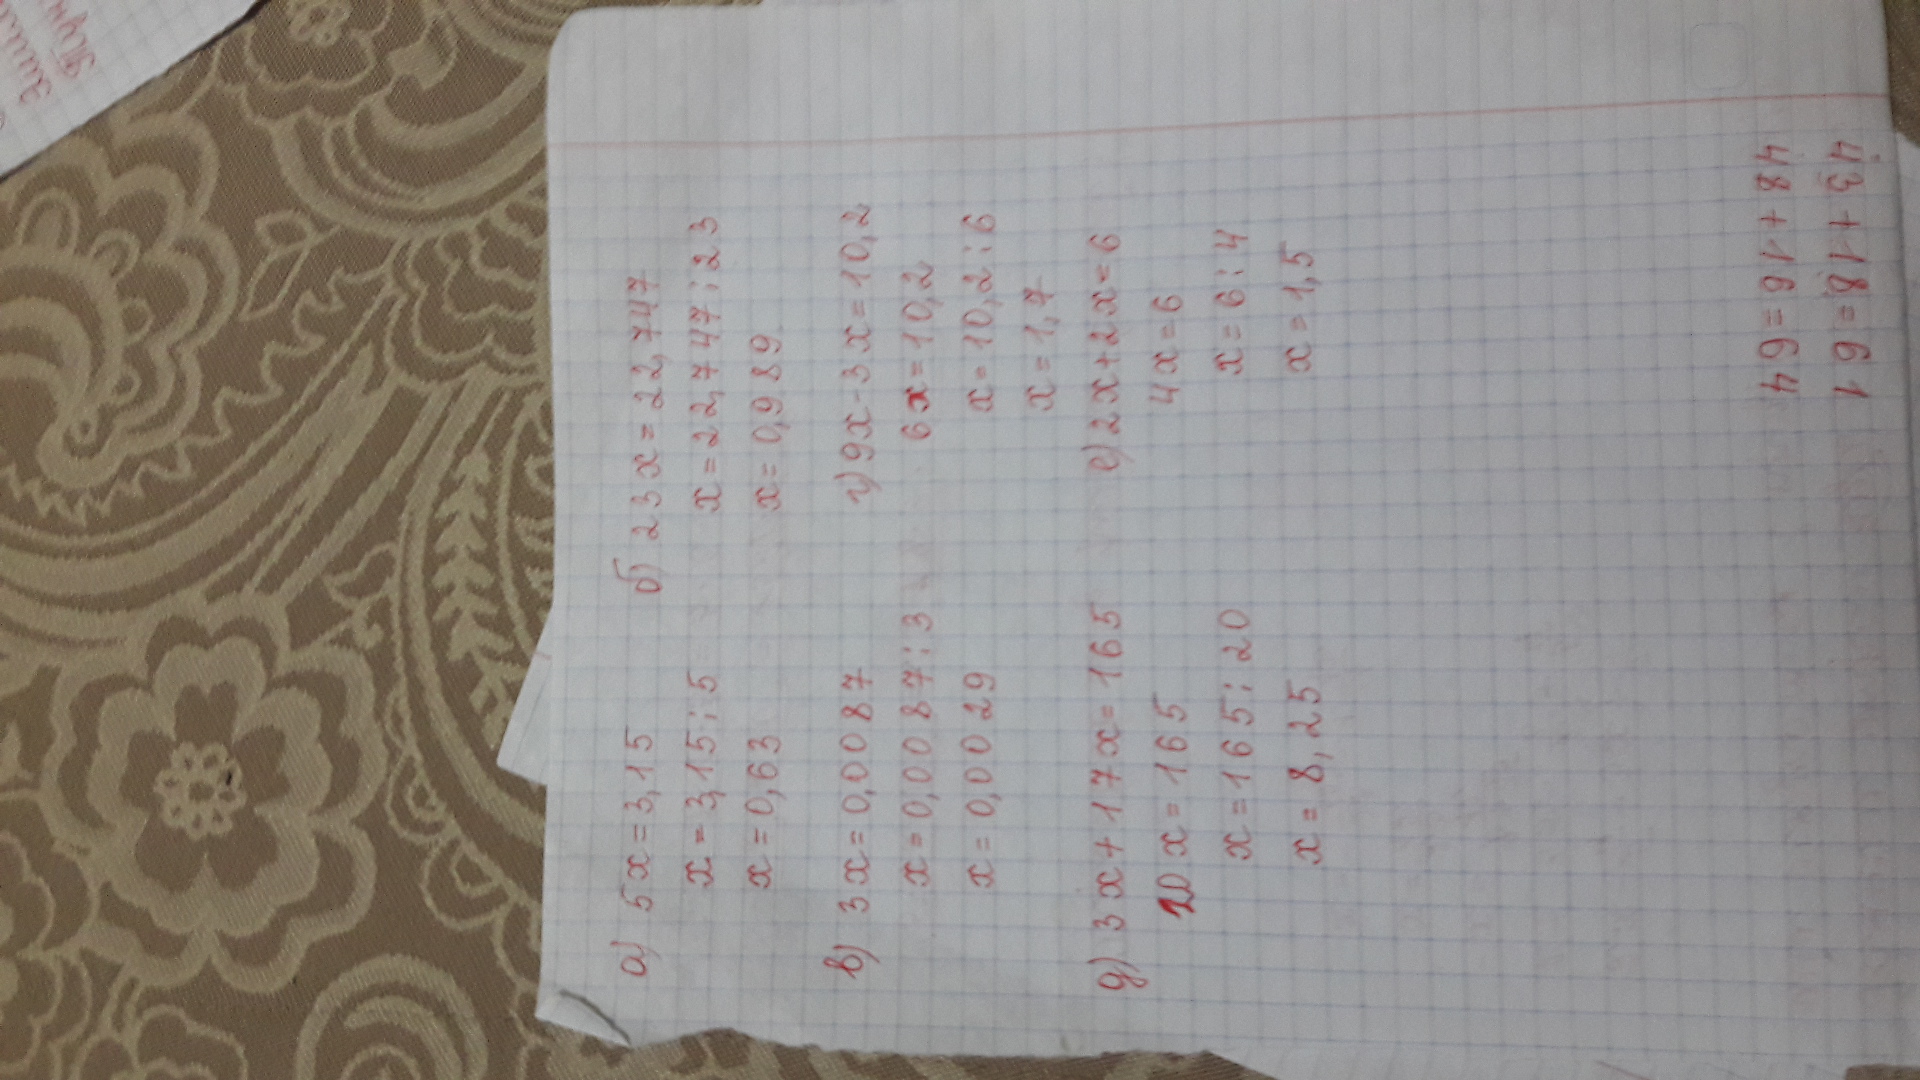 а) 5x=3,15
x=3,15:5
x=0,63
б) 23x=22,747
x=22,747:23
x=0,989
в) 3x=0,0087
x=0,0087:3
x=0,0029
г) 9x-3x=10,2
6x=10,2
x=10,2:6
x=1,7
д) 3x+17x=165
20x=165
x=165:20
x=8,25
е) 2x+2x=6
4x=6
x=6:4
x=1,5
43+18=61
48+16=64